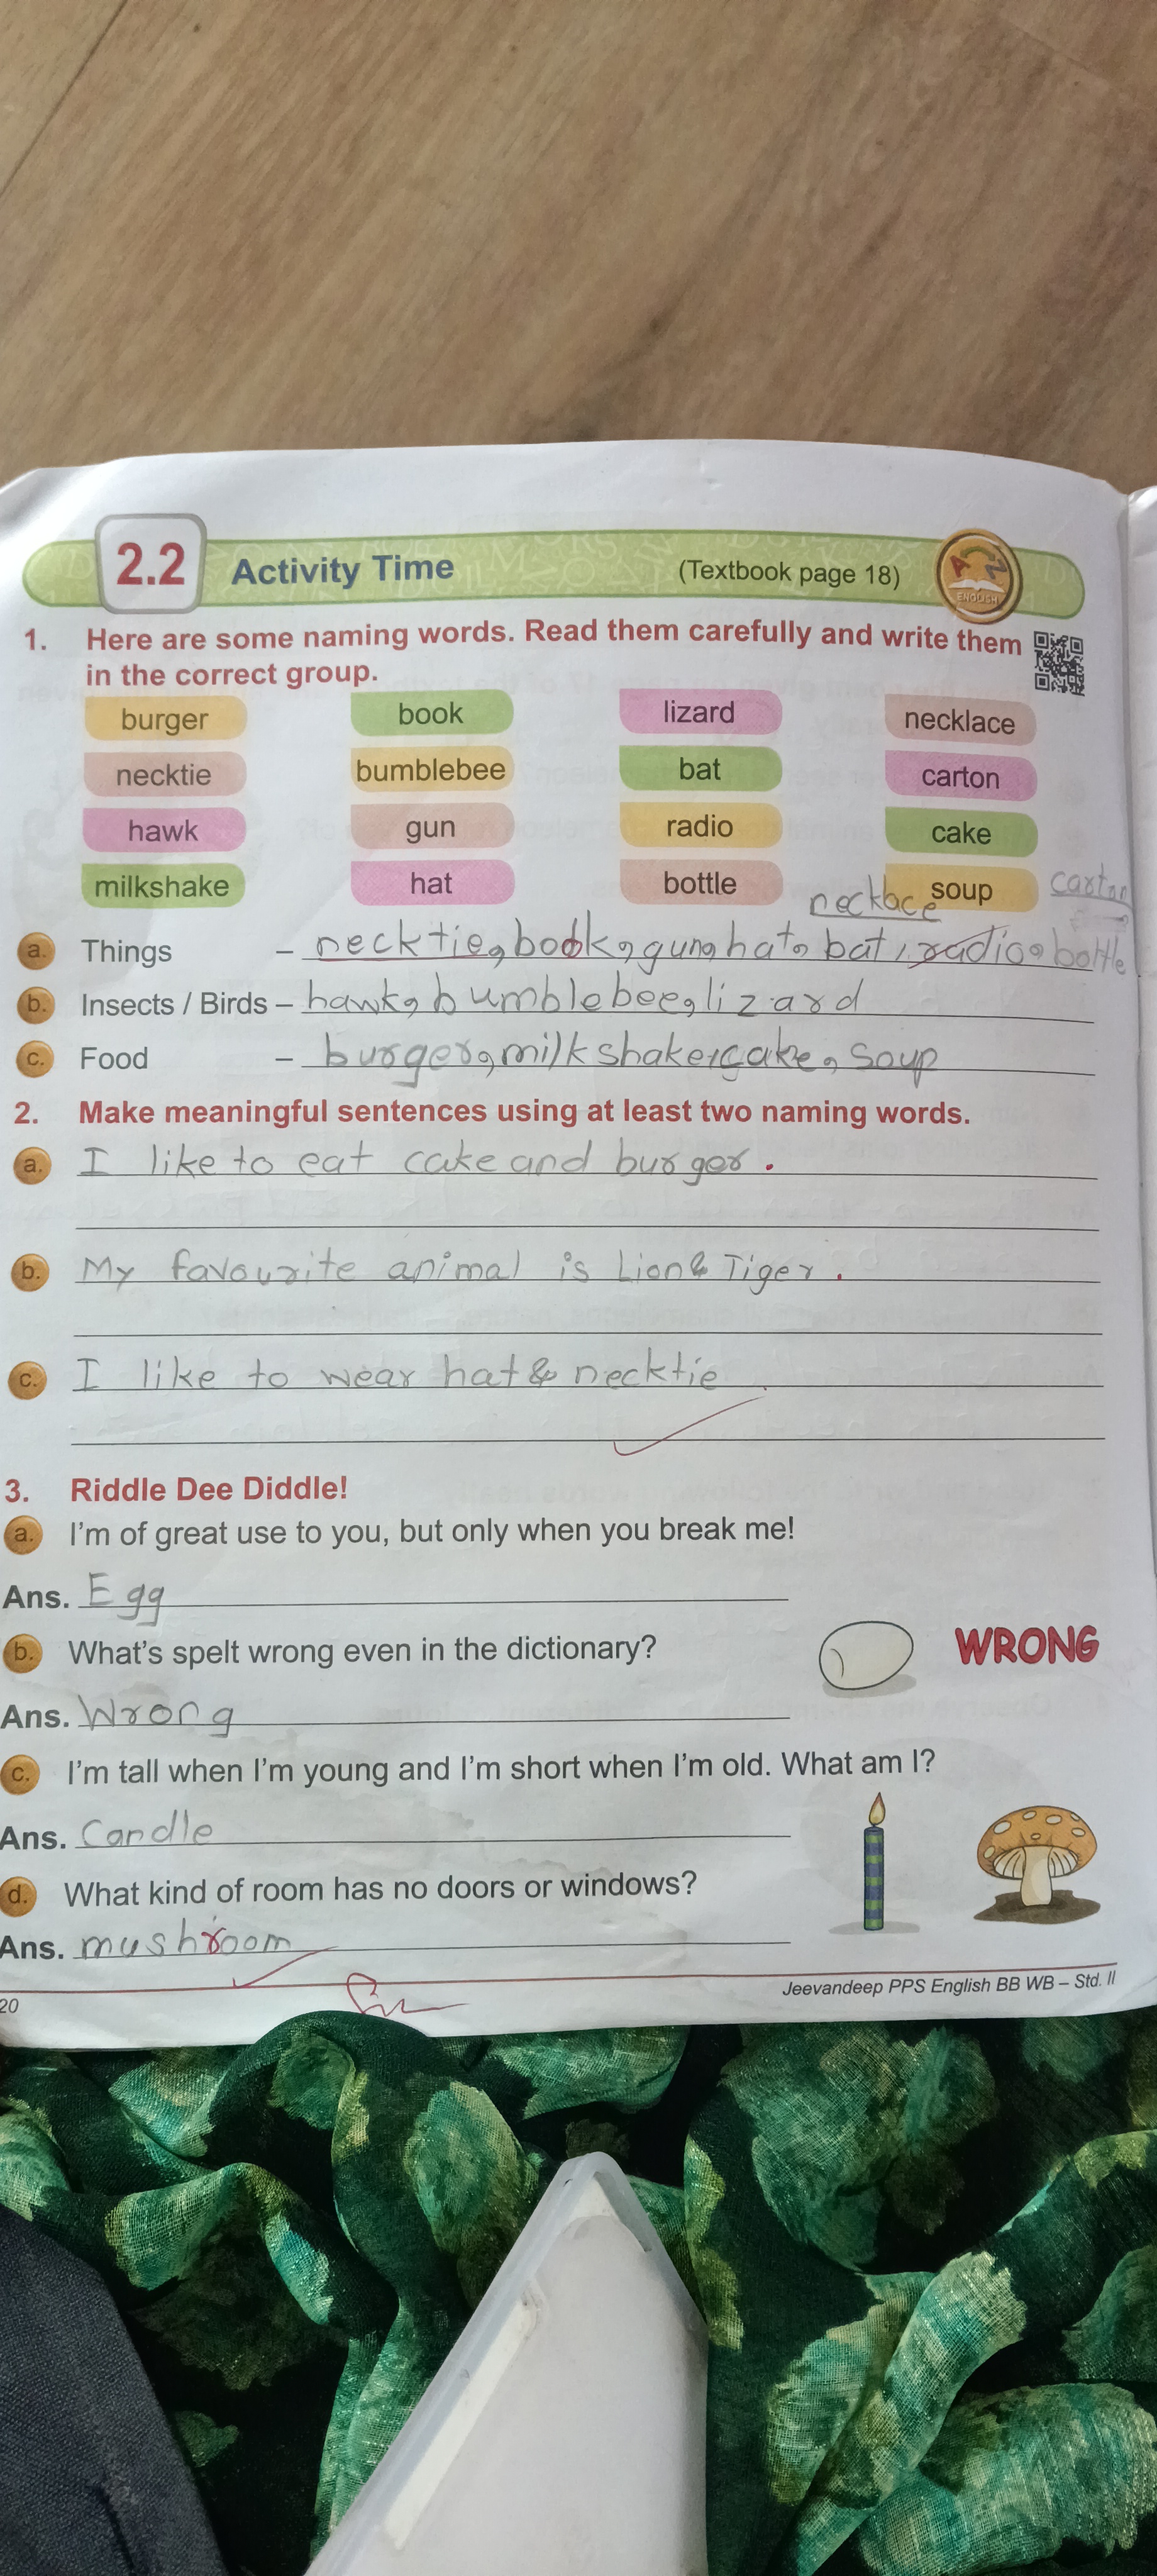 2.2 Activity Time (Textbook page 18)
ENGLISH
1. Here are some naming words. Read them carefully and write them
in the correct group.
burger book lizard necklace
necktie bumblebee bat carton
hawk gun radio cake
milkshake hat bottle soup
necklace carton
a. Things – necktie, book, gun, hat, bat, radio, bottle
b. Insects / Birds – hawk, bumblebee, lizard
c. Food – burger, milkshake, cake, soup
2. Make meaningful sentences using at least two naming words.
a. I like to eat cake and burger.
b. My favourite animal is Lion & Tiger.
c. I like to wear hat & necktie.
3. Riddle Dee Diddle!
a. I'm of great use to you, but only when you break me!
Ans. Egg
b. What's spelt wrong even in the dictionary?
WRONG
Ans. Wrong
c. I'm tall when I'm young and I'm short when I'm old. What am I?
Ans. Candle
d. What kind of room has no doors or windows?
Ans. mushroom
Jeevandeep PPS English BB WB – Std. II
20